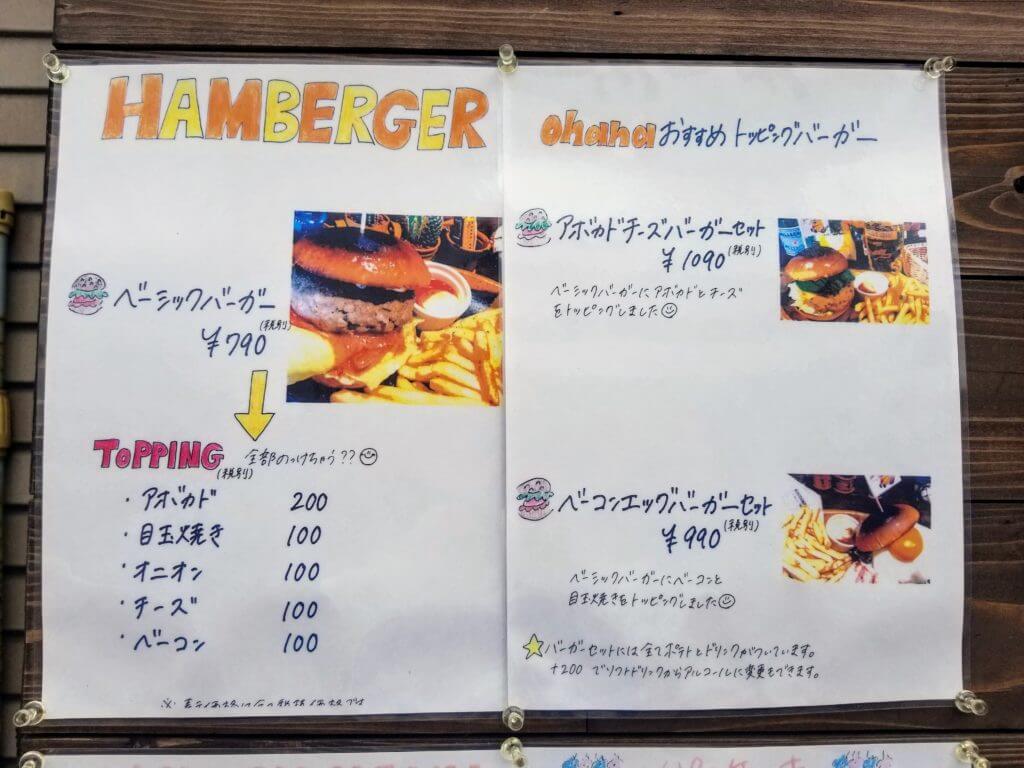 HAMBERGER
ベーシックバーガー
(税別)
¥790
TOPPING
(税別)
全部のっけちゃう??
・アボカド 200
・目玉焼き 100
・オニオン 100
・チーズ 100
・ベーコン 100
ohanaおすすめトッピングバーガー
アボカドチーズバーガーセット
¥1090(税別)
ベーシックバーガーにアボカドとチーズ
をトッピングしました
ベーコンエッグバーガーセット
¥990(税別)
ベーシックバーガーにベーコンと
目玉焼きをトッピングしました
バーガーセットには全てポテトとドリンクがついています。
+200でソフトドリンクからアルコールに変更もできます。